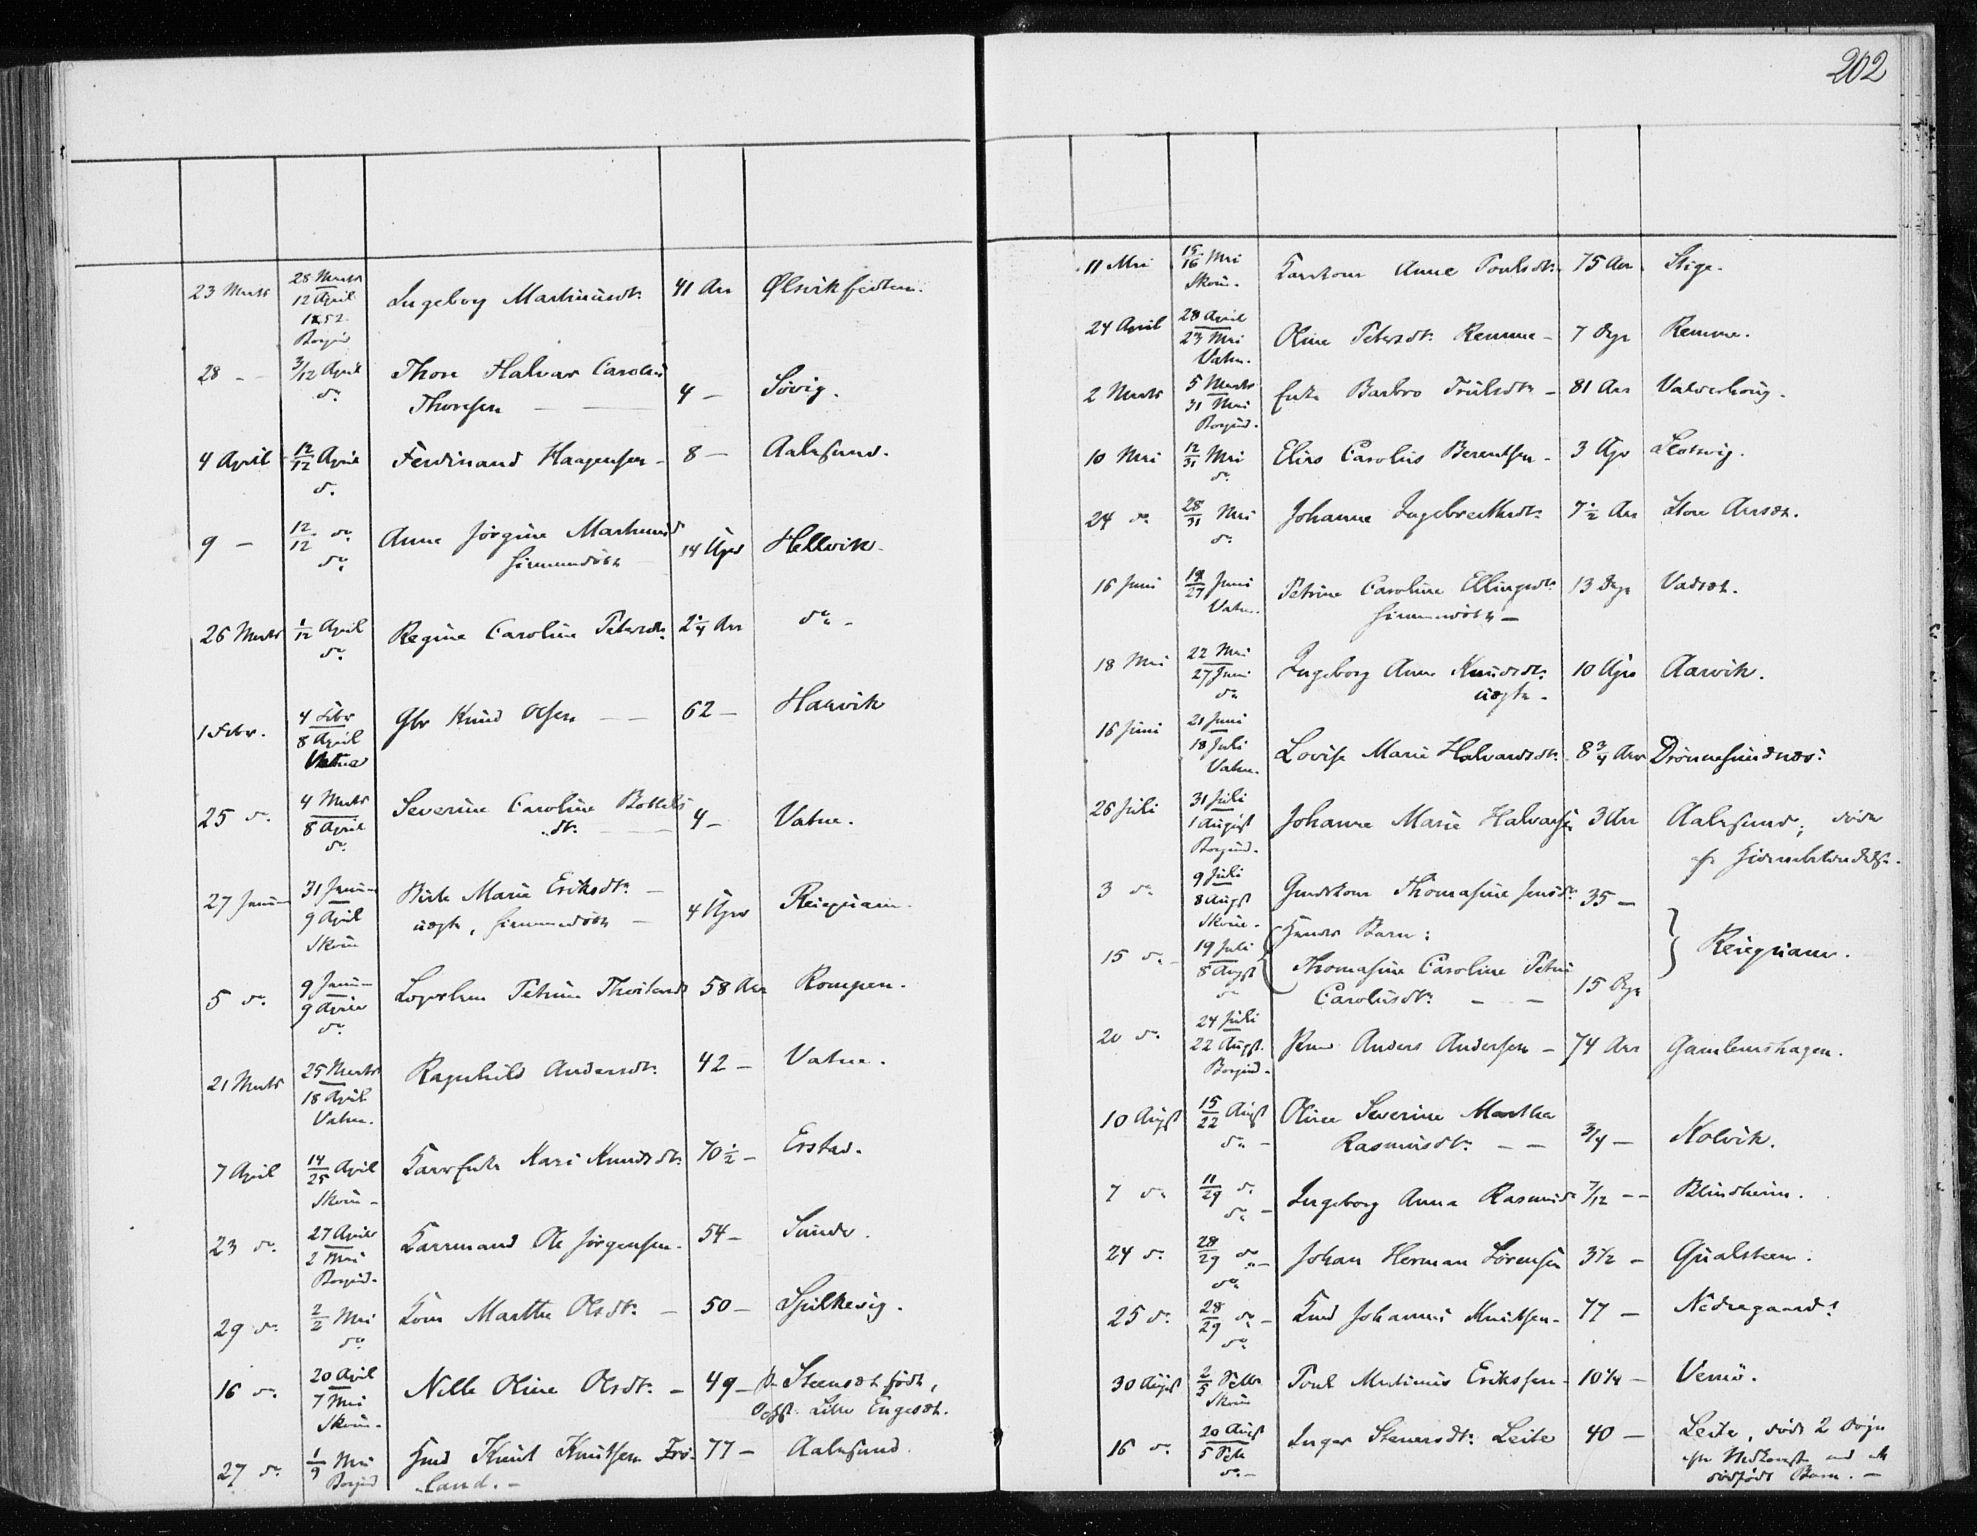 202
23 Marts 28 Marts Ingeborg Martinusdtr. 41 Aar Ølsvikfedten.
12 April
1852.
Borgund
28 - 3/12 April Thore Halvar Carolus
do. Thoresen 4 - Søvig.
4 April 12/12 April Ferdinand Haagensen - 8 - Aalesund.
do.
9 - 12/12 do. Anne Jørgine Martinusd
do. hjemmedøbt 14 Uger Hellevik.
26 Marts 1/12 April Regine Caroline Petersdtr. 2 1/4 Aar do. -
do.
1 Febr. 4 Febr Gbr Knud Olsen 62 - Harvik
8 April
Vatne
25 do. 4 Marts Severine Caroline Bottels
8 April dtr. 4 - Vatne.
do.
27 Januar 31 Januar Birte Marie Eriksdtr. -
9 April uægte, hjemmedøbt - 4 Uger
Skoue
5 do. 9 Januar Petrine 58 Aar Rompen.
9 April
do.
21 Marts 25 Marts Ragnhild Andersdtr. 42 - Vatne.
18 April
Vatne.
7 April 14/25 April Kaarenke Kari Knudsdtr. 70 1/2 - Erstad.
Skoue -
23 do. 27 April Kaarmand Ole Jørgensen. 54 - Sunde.
2 Mai
Borgund.
29 do. 2/2 Mai Kone Marthe Olsdtr. - 50 - Spilkevig.
do.
16 do. 20 April Nille Oline Olsdtr. - 49 - Steensæt født,
7 Mai Lille Engesæt.
Skoue.
27 do. 1/9 Mai Knut Knutsen Frø- 77 - Aalesund.
Borgund land. -
11 Mai 15/16 Mai Kaarkone Anne Poulsdtr. 75 Aar Slige.
Skoue.
24 April 28 April Oline Petersdtr. Remme - 7 Dage Remme.
23 Mai
Vatne.
2 Marts 5 Marts Enke Barbro Trulsdtr - 81 Aar Valderhoug.
31 Mai
Borgund.
10 Mai 12/31 Mai Elias Carolus Berentsen - 3 Uger Slotsvig.
do.
24 do. 28/31 Mai Johanne Ingebrectsdtr. 7 1/2 Aar Store Aarsæt.
do.
16 Juni 19/27 Juni Petrine Caroline Ellingsdtr. 13 Dage Vadset.
Vatne. hjemmedøbt -
18 Mai 22 Mai Ingeborg Anne Knudsdtr. 10 Uger Aarvik.
27 Juni uægte.
do.
16 Juni 21 Juni
18 Juli Lovise Marie Halvardsdtr. 8 3/4 Aar Drønnesundnæs.
Vatne.
26 Juli 31 Juli Johanne Marie Halvarsen 3 Aar Aalesund; døde
1 August af Hjernebetændelse.
Borgund.
3 do. 9 Juli Gaardkone Thomasine Jensdtr. 35 -
8 Augst
Skoue. Hendes Barn:
15 do. 19 Juli Thomasine Caroline Petrine
8 Augst Carolusdtr. - - 15 Dage
do.
20 do. 24 Juli Anders Andersen - 74 Aar Gamlemshagen.
22 Augst.
Borgund.
10 Augst 15/22 Augst Oline Severine Marthea
do. - Rasmusdtr. - - 3/4 - Kolvik.
7 do. 11/29 do. Ingeborg Anna Rasmusd 7/12 - - Blindheim.
do. -
24 do. 28/29 do. - Johan Herman Sørensen 3 1/2 - Qualsteen.
do.
25 do. 28/29 do. - Johannes Knutsen - 77 - Nedregaard.
do.
30 August 2/5 Septbr Poul Martinus Eriksen - 10 1/4 - Vemø.
Skoue
16 do. 20 Augst Inger Steversdtr. Leite 40 - Leite, døde 2 Døgn
5 Sept efter Nedkomst med et
do. - dødfødt Barn. -